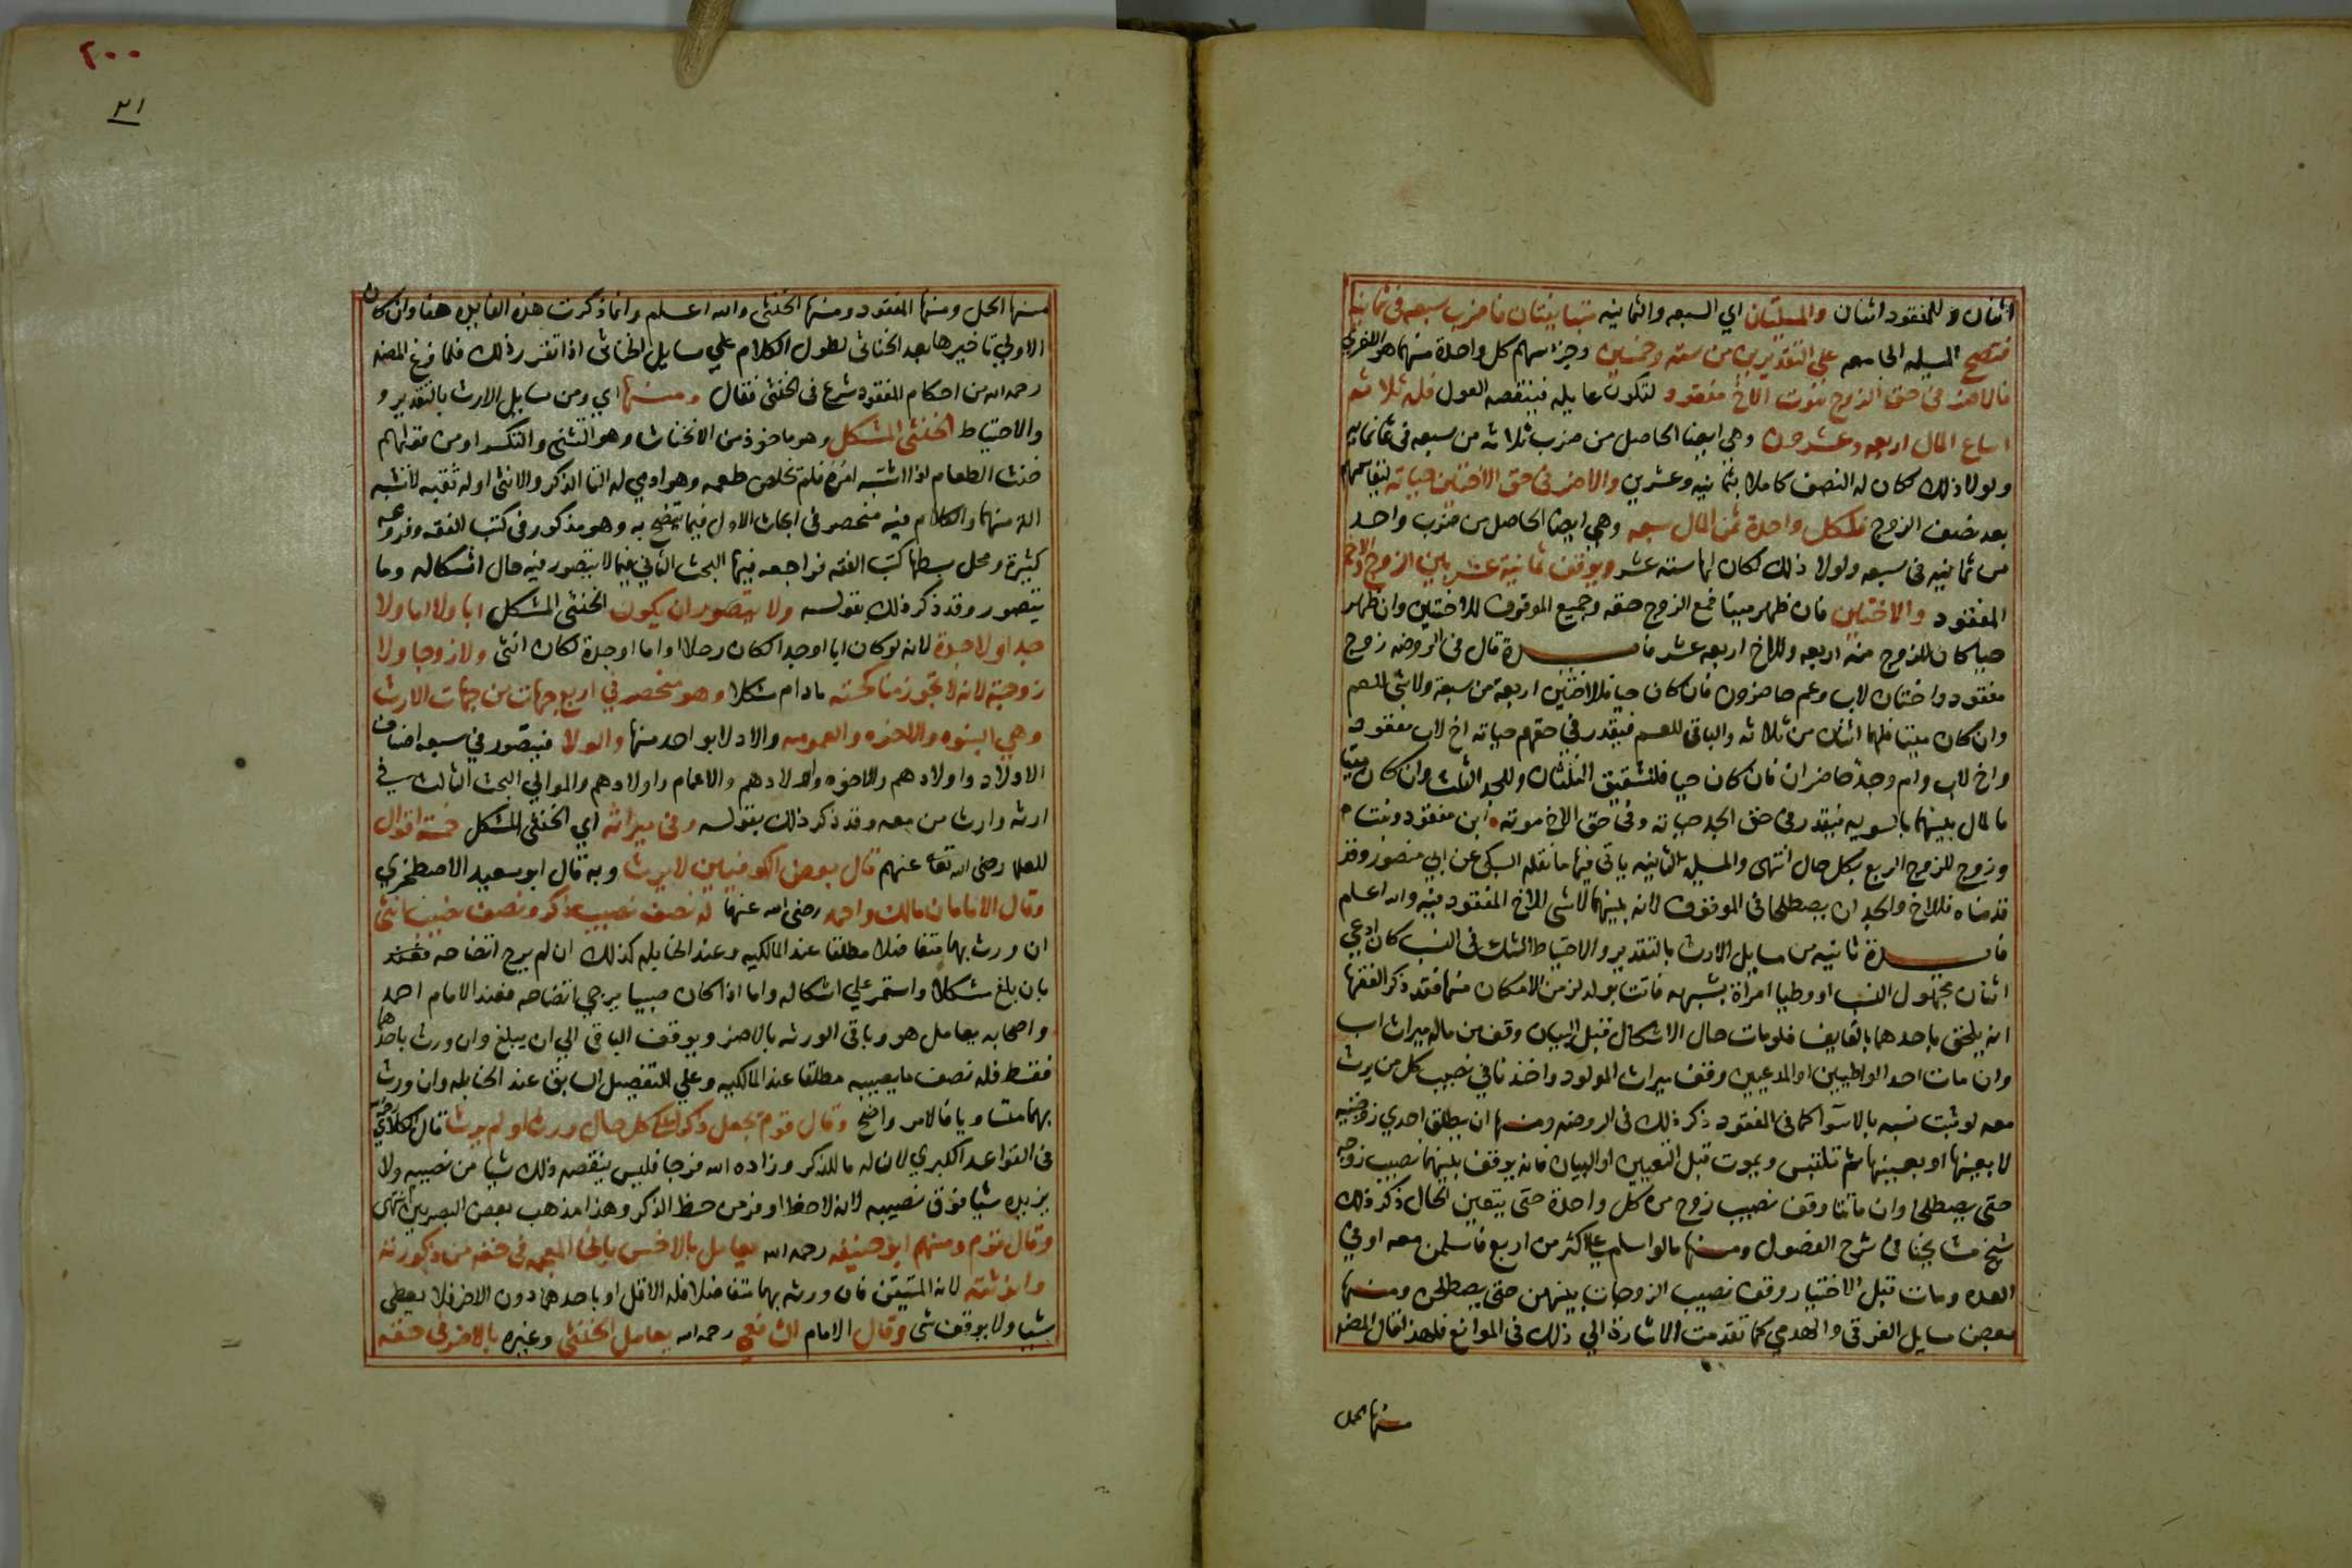 اثنان وللمفقود اثنان والمسلتان اي السبعه والثمانيه متباينتان فاضرب سبعه في ثمانيه
فتصح المسيله الجامعه على التقديرين من سته وخمسين وجز سهم كل واحدة منهما هو الاخري
فالاضر في حق الزوج موت الاخ مفقود لتكون عايله فينقصه العول فله ثلاثه
اسباع المال اربعه وعشرون وهي ايضا الحاصل من ضرب ثلاثه من سبعه في ثمانيه
ولولا ذلك لكان له النصف كاملا بثمانيه وعشرين والاضر في حق الاختين حياته
بعد نصف الزوج فلكل واحدة ثمن المال سبعه وهي ايضا الحاصل من ضرب واحد
من ثمانيه في سبعه ولولا ذلك لكان لها سته عشر ويوقف ثمانية عشر بين الزوج والاخ
المفقود والاختين فان ظهر ميتا فمع الزوج حقه وجميع الموقوف للاختين وان ظهر
حيا كان للزوج منه اربعه وللاخ اربعه عشر فايدة قال في الروضه زوج
مفقود واختان لاب وعم حاضرون فان كان حيا فللاختين اربعة من سبعة ولا شي للعم
وان كان ميتا فلهما اثنان من ثلاثه والباقي للعم فيقدر في حقهم حياته اخ لاب مفقود
واخ لاب وام وجد حاضران فان كان حيا فللشقيق الثلثان وللجد الثلث وان كان ميتا
فالمال بينهما بالسويه فيقدر في حق الجد حياته وفي حق الاخ موته ابن مفقود وبنت
وزوج للزوج الربع بكل حال انتهى والمسيله الثانيه ياتي فيها ما نقله السبكي عن ابي منصور وقد
قدمناه فللاخ والجد ان يصطلحا في الموقوف لانه بينهما لا شي للاخ المفقود فيه والله اعلم
فايدة ثانيه من مسايل الارث بالتقدير والاحتياط الشك في النسب كان ادعي
اثنان مجهول النسب او وطيا امراة بشبهه فاتت بولد لزمن الامكان منهما فقد ذكر الفقها
انه يلحق باحدهما بالقايف فلو مات حال الاشكال قبل البيان وقف من ماله ميراث اب
وان مات احد الواطيين او المدعيين وقف ميراث المولود واخذنا في نصيب كل من يرث
معه لو ثبت نسبه بالاسوا كما في المفقود ذكر ذلك في الروضه ومنها ان يطلق احدي زوجتيه
لا بعينها او بعينها ثم تلتبس ويموت قبل التعيين او البيان فانه يوقف بينهما نصيب زوجه
حتى يصطلحا وان ماتتا وقف نصيب زوج من كل واحدة حتى يتعين الحال ذكر ذلك
شيخ مشايخنا في شرح الفصول ومنها ما لو اسلم على اكثر من اربع فاسلمن معه او في
العده ومات قبل الاختيار وقف نصيب الزوجات بينهن حتى يصطلحن ومنها
بعض مسايل الغرقى والهدمي كما تقدمت الاشارة الي ذلك في الموانع فلهذا قال المصنف
منها الحمل
٢٠٠
٢١
منها الحمل ومنها المفقود ومنها الخنثي والله اعلم وانما ذكرت هذه الفايده هنا وان كان
الاولي تاخيرها بعد الخناثي لطول الكلام علي مسايل الخناثى اذا تقرر ذلك فلما فرغ المصنف
رحمه الله من احكام المفقود شرع في الخنثى فقال ومنها اي ومن مسايل الارث بالتقدير و
والاحتياط الخنثى المشكل وهو ماخوذ من الانخناث وهو التثني والتكسر او من قولهم
خنث الطعام اذا اشتبه امره فلم تخلص طعمه وهو ادمي له التا الذكر والانثى او له ثقبه لا تشبه
الة منهما والكلام فيه منحصر في ابحاث الاول فيما يتضح به وهو مذكور في كتب الفقه وفروعه
كثيرة ومحل بسطها كتب الفقه فراجعه فيها البحث الثاني فيما لا يتصور فيه حال اشكاله وما
يتصور وقد ذكر ذلك بقوله ولا يتصور ان يكون الخنثى المشكل ابا ولا اما ولا
جدا ولا جدة لانه لو كان ابا او جدا لكان رجلا او اما او جدة لكان انثى ولا زوجا ولا
زوجة لانه لا تجوز مناكحته ما دام مشكلا وهو منحصر في اربع جهات من جهات الارث
وهي البنوه والاخوه والعمومه والادلا بواحد منها والولا فيتصور في سبعه اصناف
الاولاد واولادهم والاخوه واولادهم والاعمام واولادهم والموالي البحث الثالث في
ارثه وارث من معه وقد ذكر ذلك بقوله وفي ميراثه اي الخنثى المشكل خمسة اقوال
للعلما رضي الله تعا عنهم قال بعض الكوفيين لا يرث وبه قال ابو سعيد الاصطخري
وقال الامامان مالك واحمد رضي الله عنهما له نصف نصيب ذكر ونصف نصيب انثى
ان ورث بهما متفاضلا مطلقا عند المالكيه وعند الحنابله كذلك ان لم يرج اتضاحه
بان بلغ مشكلا واستمر علي اشكاله واما اذا كان صبيا يرجى اتضاحه فعند الامام احمد
واصحابه يعامل هو وباقي الورثه بالاضر ويوقف الباقي الي ان يبلغ وان ورث باحدهما
فقط فله نصف ما يصيبه مطلقا عند المالكيه وعلي التفصيل السابق عند الحنابله وان ورث
بهما متساويا فالامر واضح وقال قوم يجعل ذكرا على كل حال ورث او لم يرث قال الكلاي رحمه الله
في القواعد الكبري لان له ما للذكر وزاده الله فرجا فليس ينقصه ذلك شيا من نصيبه ولا
يزيده شيا فوق نصيبه لانه لا حظ اوفر من حظ الذكر وهذا مذهب بعض البصريين انتهى
وقال قوم ومنهم ابو حنيفه رحمه الله يعامل بالاخس بالخا المعجمه في حقه من ذكورته
وانوثته لانه المتيقن فان ورثه بهما متفاضلا فله الاقل او باحدهما دون الاخر فلا يعطى
شيا ولا يوقف شى وقال الامام الشافعي رحمه الله يعامل الخنثى وغيره بالاضر في حقه